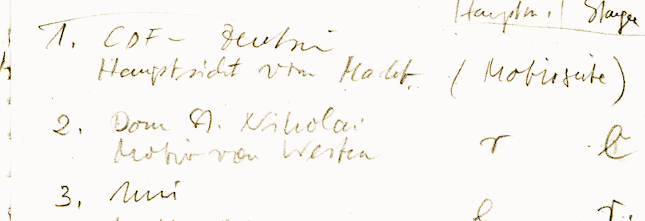 Hauptm. | Stange
1. CDF-
Hauptsicht vom Markt (Motivseite)
2. Dom St. Nikolai
Motiv von Westen r l
3. Uni
l r.